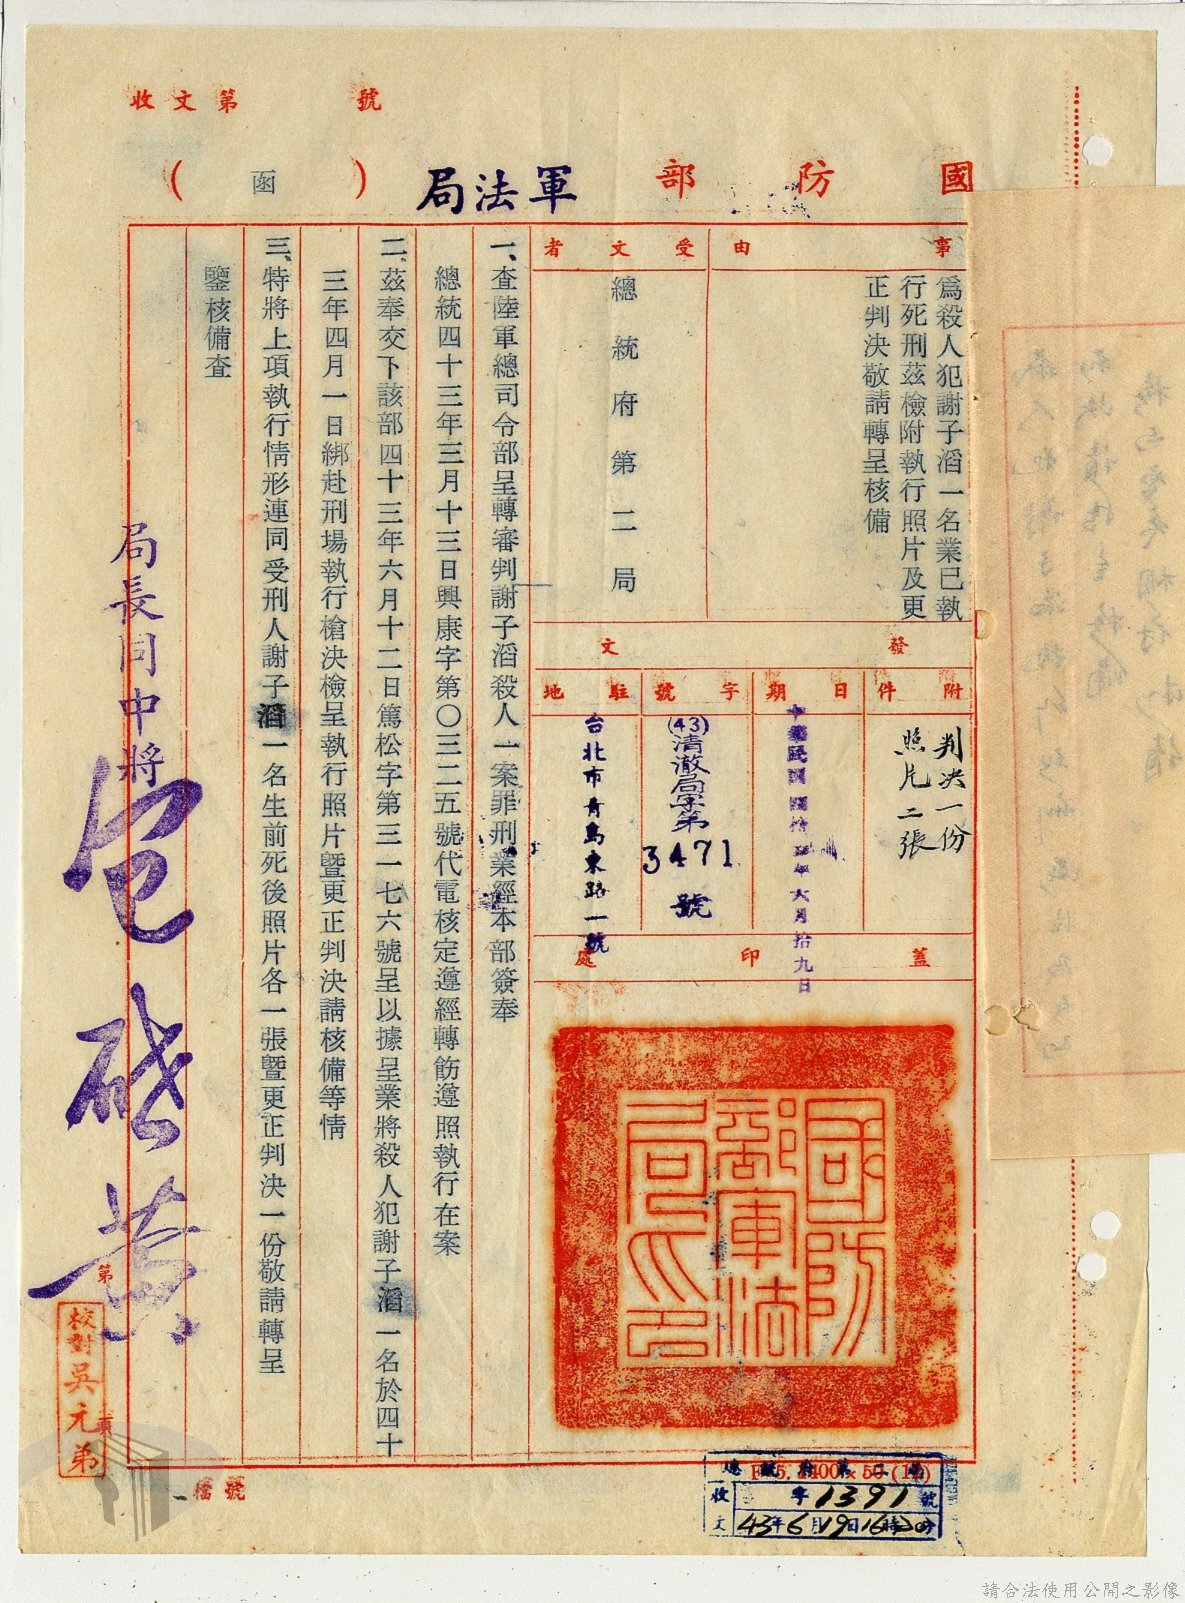 收文第　　號
國防部軍法局（函）
事由
為殺人犯謝子滔一名業已執
行死刑茲檢附執行照片及更
正判決敬請轉呈核備
受文者
總統府第二局
發文
附件
判決一份
照片二張
日期
中華民國四拾叁年六月拾九日
字號
(43)清澈局字第
3471
號
駐地
台北市青島東路一號
蓋印處
國防部軍法局印
一、查陸軍總司令部呈轉審判謝子滔殺人一案罪刑業經本部簽奉
總統四十三年三月十三日興康字第〇三二五號代電核定遵經轉飭遵照執行在案
二、茲奉交下該部四十三年六月十二日篤松字第三一七六號呈以據呈業將殺人犯謝子滔一名於四十
三年四月一日綁赴刑場執行槍決檢呈執行照片暨更正判決請核備等情
三、特將上項執行情形連同受刑人謝子滔一名生前死後照片各一張暨更正判決一份敬請轉呈
鑒核備查
局長同中將包啟黃
第
頁
校對吳元弟
檔號
總統府第二局
收文 字1391號
43年6月19日16時20分
請合法使用公開之影像